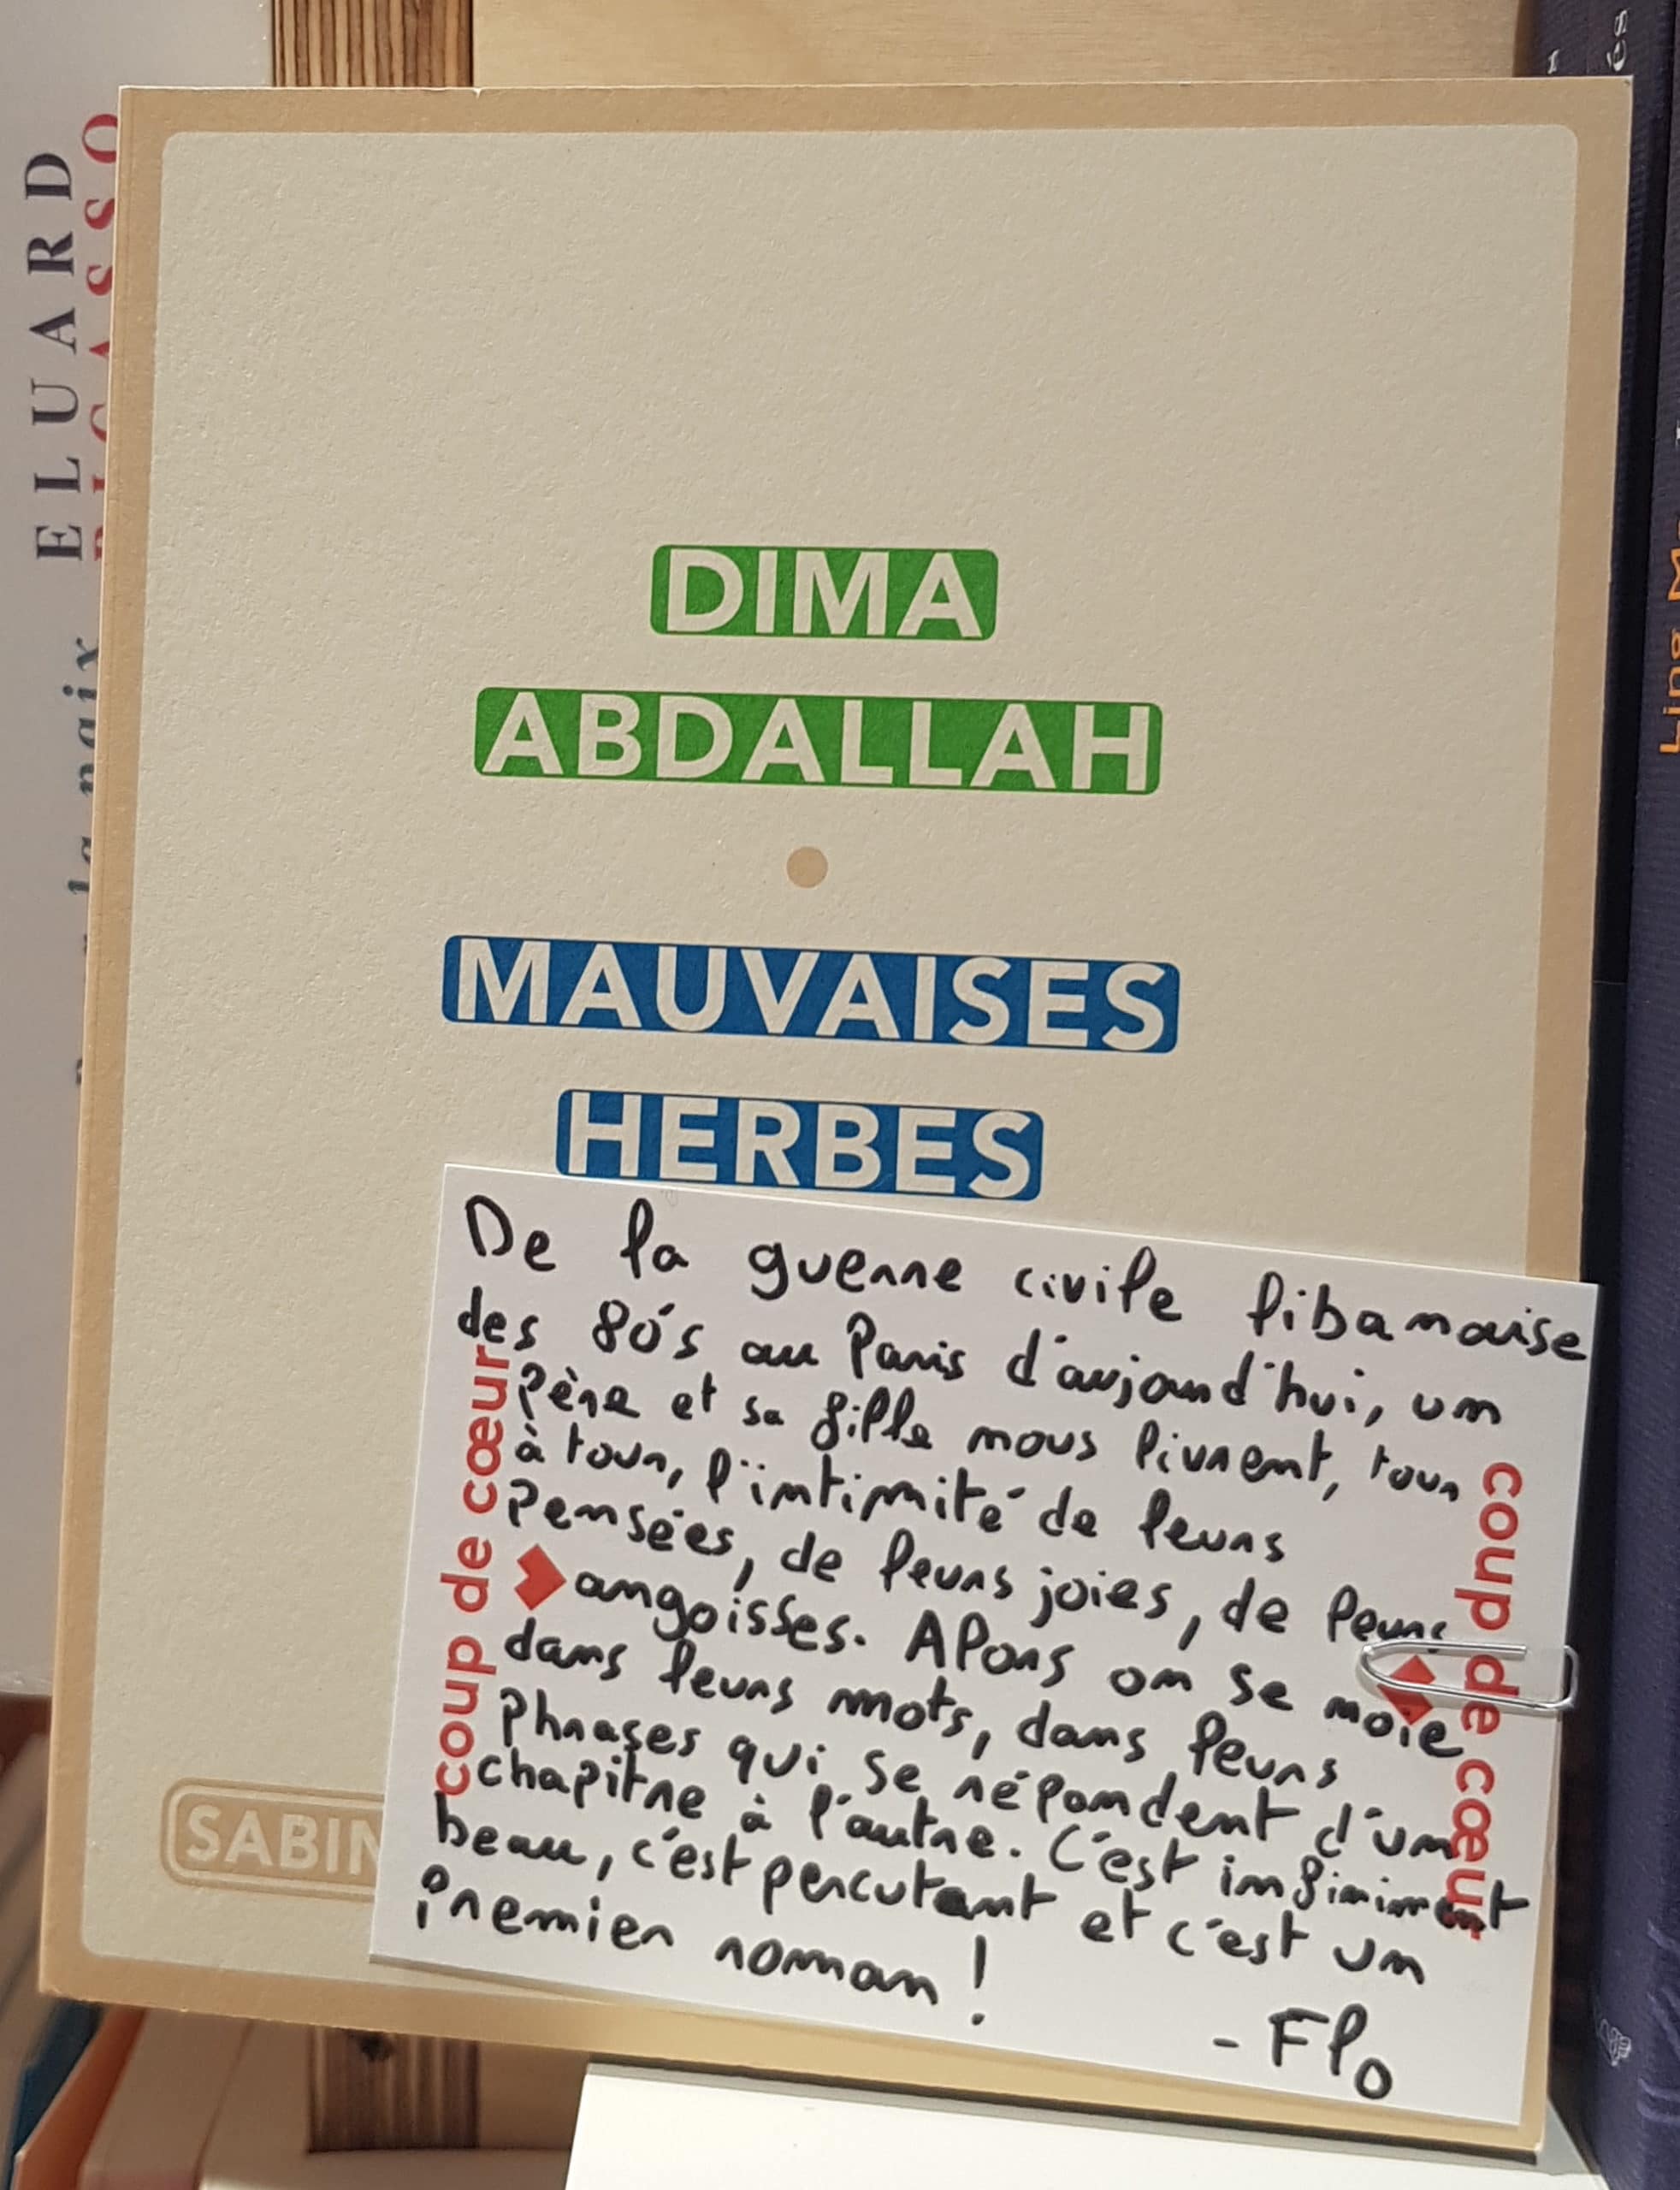 ELUARD
PICASSO
la paix
DIMA
ABDALLAH
MAUVAISES
HERBES
De la guerre civile libanaise
des 80's au Paris d'aujourd'hui, un
père et sa fille nous livrent, tour
à tour, l'intimité de leurs
pensées, de leurs joies, de leurs
angoisses. Alors on se noie
dans leurs mots, dans leurs
phrases qui se répondent d'un
chapitre à l'autre. C'est infiniment
beau, c'est percutant et c'est un
premier roman !
- Flo
coup de cœur
coup de cœur
SABIN
Ling
és